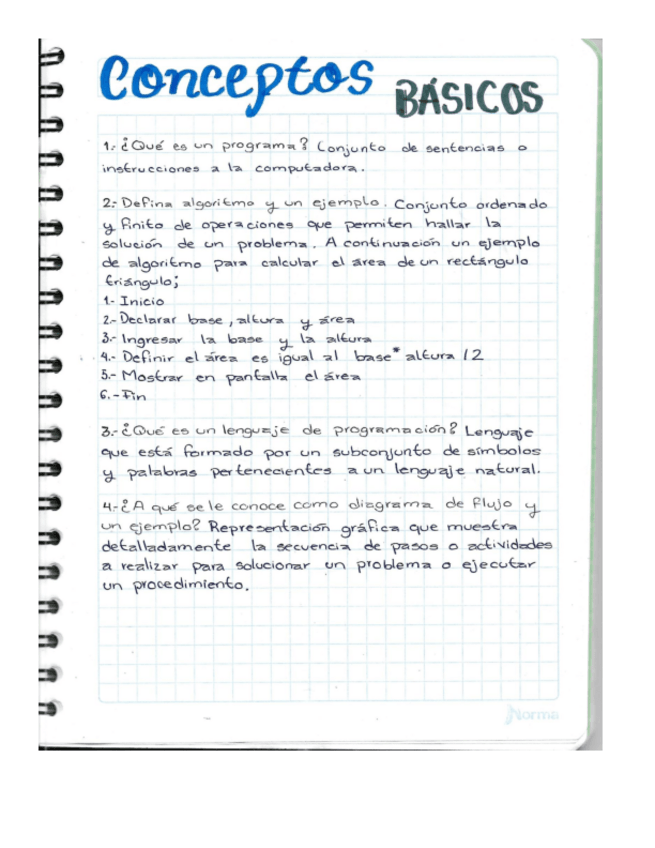 Conceptos BÁSICOS
1.- ¿Qué es un programa? Conjunto de sentencias o
instrucciones a la computadora.
2.- Defina algoritmo y un ejemplo. Conjunto ordenado
y finito de operaciones que permiten hallar la
solución de un problema. A continuación un ejemplo
de algoritmo para calcular el área de un rectángulo
triángulo;
1- Inicio
2.- Declarar base, altura y área
3.- Ingresar la base y la altura
4.- Definir el área es igual al base* altura / 2
5.- Mostrar en pantalla el área
6.- Fin
3.- ¿Qué es un lenguaje de programación? Lenguaje
que está formado por un subconjunto de símbolos
y palabras pertenecientes a un lenguaje natural.
4.- ¿A qué se le conoce como diagrama de flujo y
un ejemplo? Representación gráfica que muestra
detalladamente la secuencia de pasos o actividades
a realizar para solucionar un problema o ejecutar
un procedimiento.
Norma